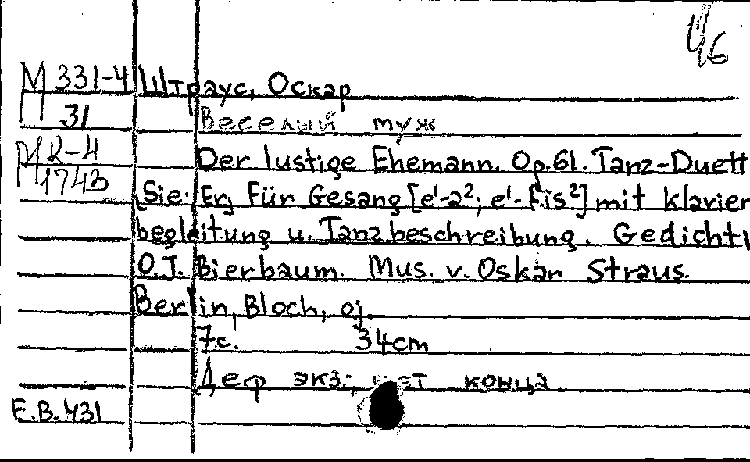 46
М 331-4 Штраус, Оскар
31 Веселый муж
М К-4 Der lustige Ehemann. Op. 61. Tanz-Duett
1743 [Sie; Er] für Gesang [e¹-a²; e¹-fis²] mit Klavier
begleitung u. Tanzbeschreibung. Gedicht v
O.J. Bierbaum. Mus. v. Oskar Straus.
Berlin, Bloch, oj.
7c. 34cm
Деф экз; нет конца
E.B.431